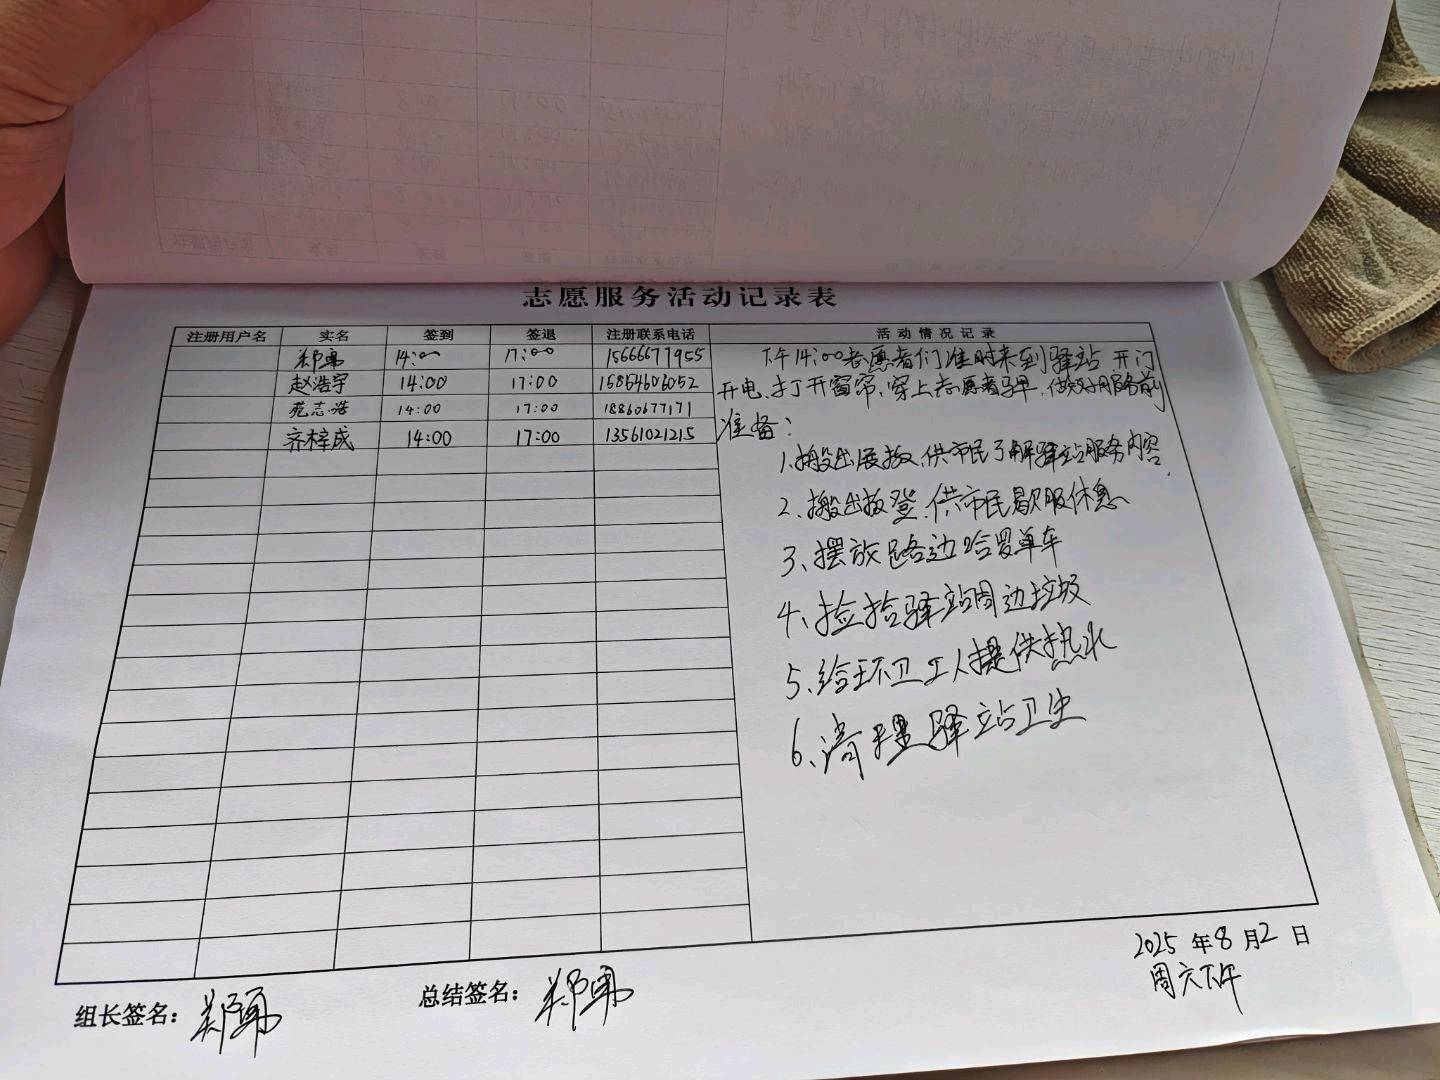 志愿服务活动记录表
注册用户名 实名 签到 签退 注册联系电话 活动情况记录
郑勇 14:00 17:00 15666677955
赵浩宇 14:00 17:00 15854606052
范志浩 14:00 17:00 18860677171
齐梓成 14:00 17:00 13561021215
下午14:00志愿者们准时来到驿站 开门
开电、打开窗帘、穿上志愿者马甲、做好服务前
准备：
1、搬出展板、供市民了解驿站服务内容
2、搬出板登、供市民歇脚休息
3、摆放路边哈罗单车
4、捡拾驿站周边垃圾
5、给环卫工人提供热水
6、清理驿站卫生
2025 年 8 月 2 日
周六下午
组长签名： 郑勇
总结签名： 郑勇